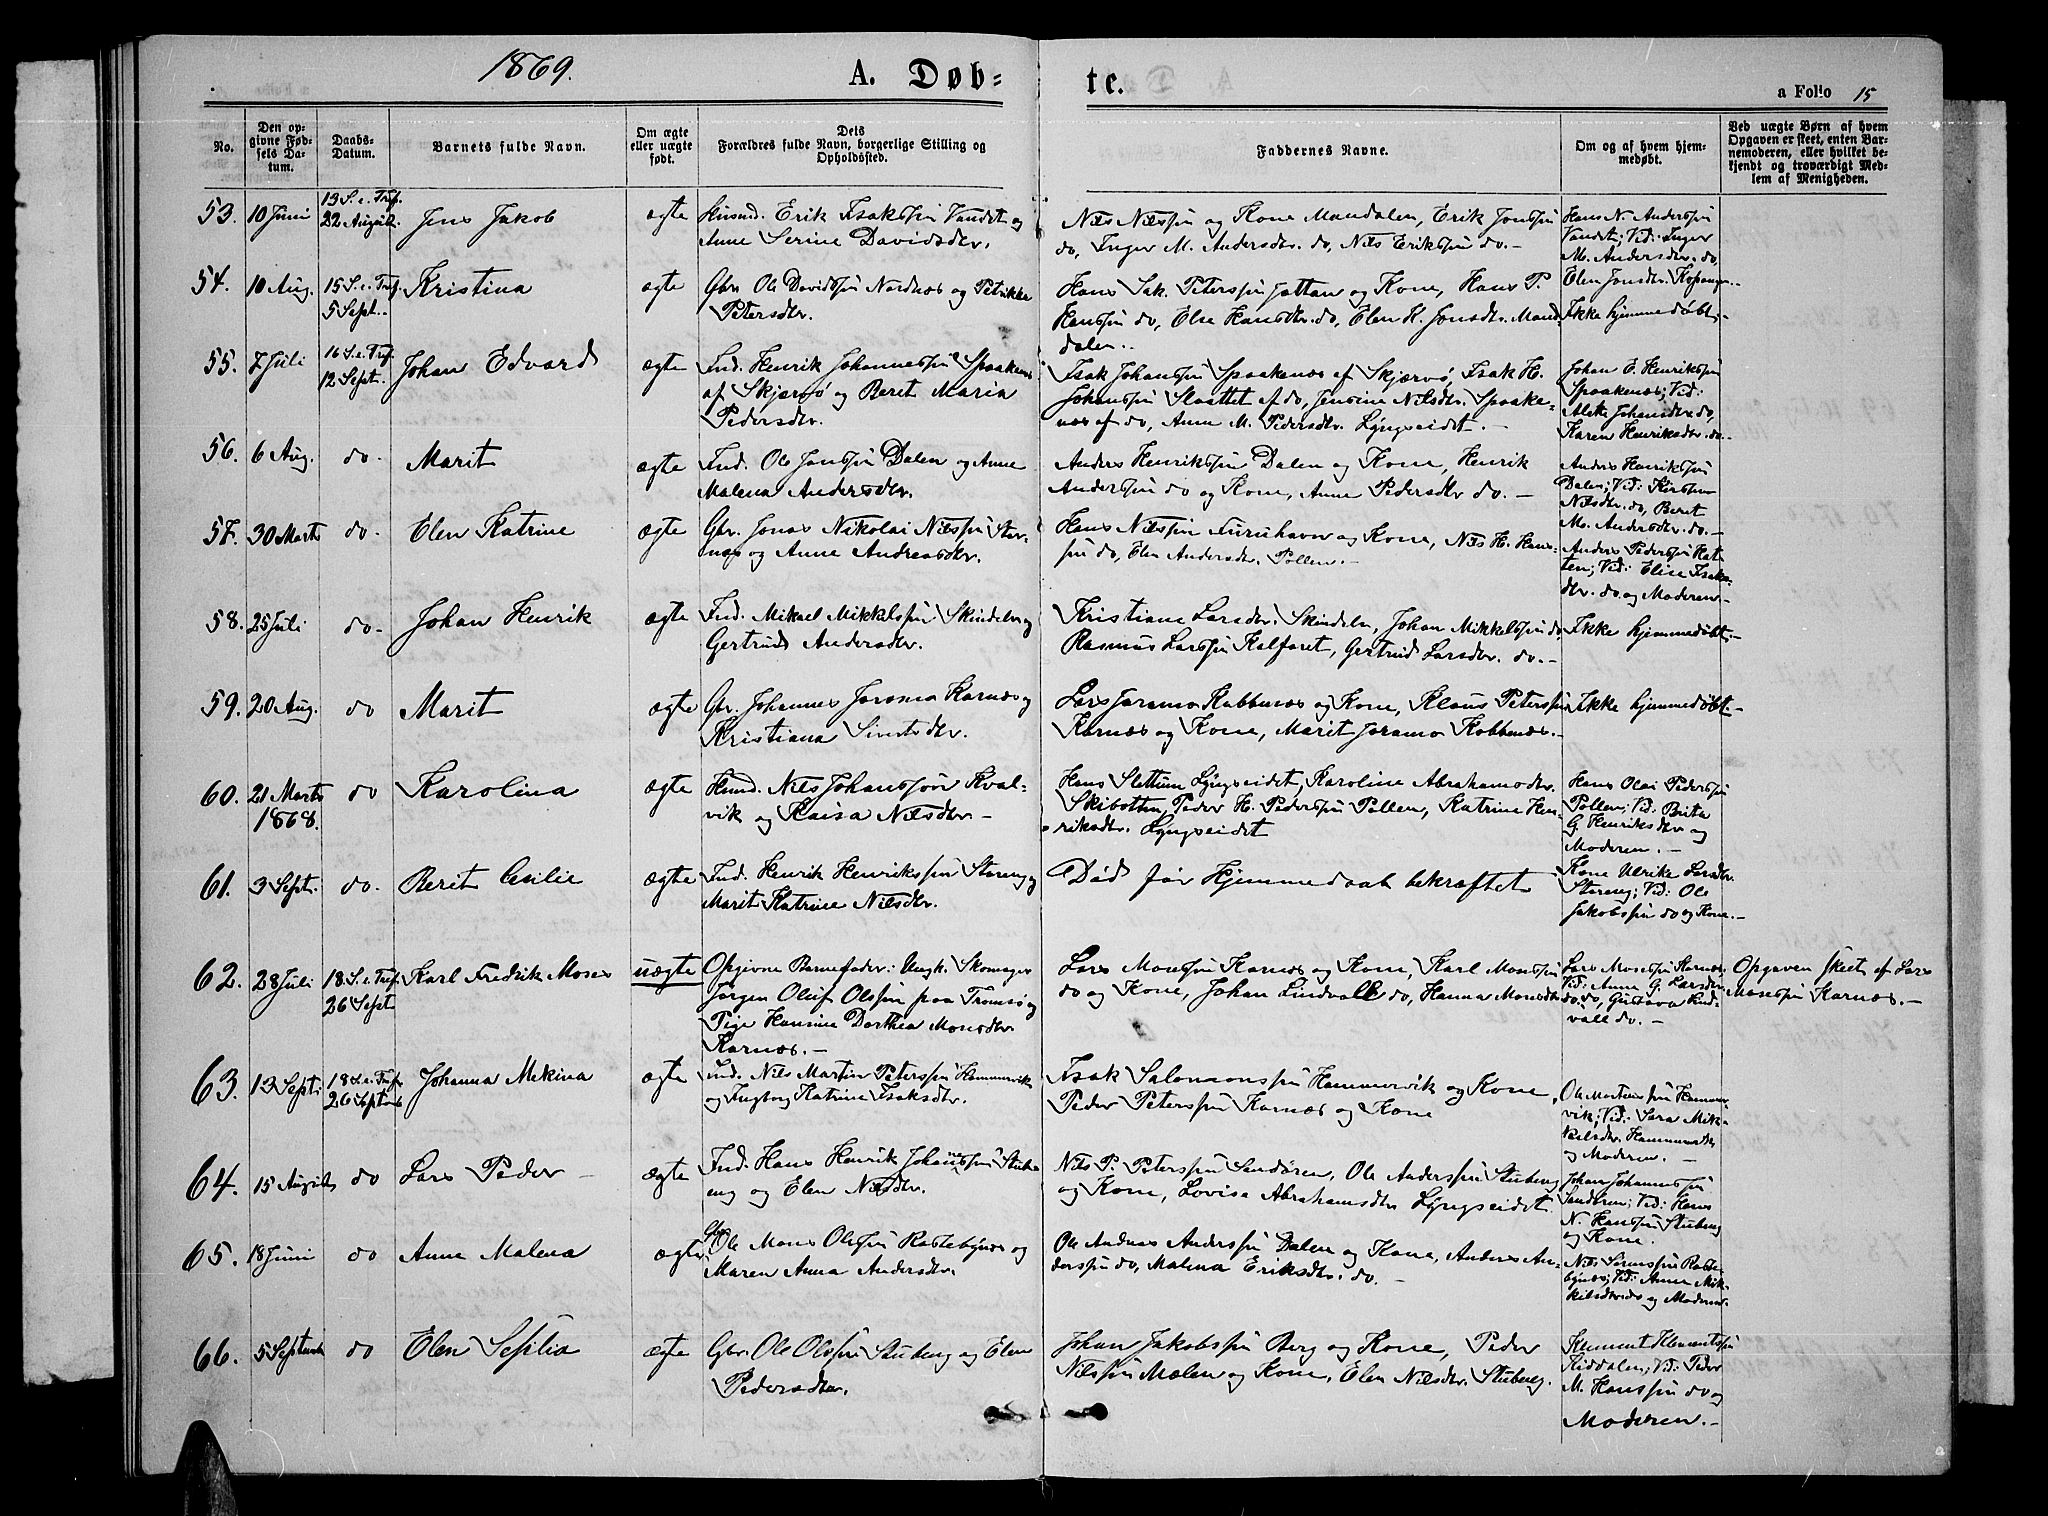 1869.
A. Døb=
te.
a Folio 15
No.
Den op-
givne Fød-
sels Da-
tum.
Daabs-
Datum.
Barnets fulde Navn.
Om ægte
eller uægte
født.
Dets
Forældres fulde Navn, borgerlige Stilling og
Opholdssted.
Faddernes Navne.
Om og af hvem hjem-
medøbt.
Ved uægte Børn af hvem
Opgaven er skeet, enten Bar-
nemoderen, eller hvilket be-
kjendt og troværdigt Med-
lem af Menigheden.
53. 10 Juni
13 S. e. Tref.
22 August
Jens Jakob
ægte
Husmd. Erik Isakssøn Vandet og
Anne Serine Davidsdtr.
Nils Nilssøn og Kone Mandalen, Erik Jonssøn
do, Inger M. Andersdtr. do, Nils Erikssøn do.-
Hans N. Anderssøn
Vandet; Vid: Inger
M. Andersdtr. do,
Elen Jonsdtr. Kopangen.-
54. 10 Aug.
15 S. e. Tref.
5 Sept.
Kristina
ægte
Gbr. Ole Davidssøn Nordnæs og Petrikke
Petersdtr.
Hans Sak. Peterssøn Jottan og Kone, Hans P.
Hanssøn do, Else Hansdtr. do, Elen K. Jonsdtr. Mand-
dalen..
Ikke hjemmedøbt
55. 7 Juli
16 S. e. Tref.
12 Sept.
Johan Edvard
ægte
Ind. Henrik Johannessøn Spaakenæs
af Skjærvø og Beret Maria
Pedersdtr.
Isak Johanssøn Spaakenæs af Skjærvø, Isak H.
Johanssøn Slaattet af do, Jensine Nilsdtr. Spaake-
næs af do, Anne M. Pedersdtr. Lyngseidet.-
Johan E. Henrikssøn
Spaakenæs; Vid:
Alet Johansdtr. do,
Karen Henriksdtr. do.-
56. 6 Aug.
do.
Marit
ægte
Ind. Ole Jonssøn Dalen og Anne
Malena Andersdtr.
Anders Henrikssøn Dalen og Kone, Henrik
Anderssøn do og Kone, Anne Pedersdtr do.-
Anders Henrikssøn
Dalen; Vid: Kirsten
Nilsdtr. do, Beret
M. Andersdtr. do.-
57. 30 Marts
do.
Elen Katrine
ægte
Gbr. Jonas Nikolai Nilssøn Stor-
næs og Anne Andreasdtr.
Hans Nilssøn Furuhavn og Kone, Nils H. Hans-
søn do, Elen Andersdtr. Pollen.-
Anders Pederssøn Hat-
ten; Vid: Elise Isaks-
dtr. do og Moderen-
58. 25 Juli
do.
Johan Henrik
ægte
Ind. Mikael Mikkelssøn Skindelv og
Gertrud Andersdtr.
Kristiane Larsdtr. Skindelv, Johan Mikkelssøn do,
Rasmus Larssøn Kalfaret, Gertrud Larsdtr. do.-
Ikke hjemmedøbt.-
59. 20 Aug.
do
Marit
ægte
Gbr. Johannes Joramo Karnæs og
Kristiana Sivertsdtr.
Lars Joramo Kobbenæs og Kone, Klaus Peterssøn
Karnæs og Kone, Marit Joramo Kobbenæs.-
Ikke hjemmedøbt.-
60. 21 Marts
1868.
do
Karolina
ægte
Husmd. Nils Johanssøn Kval-
vik og Kaisa Nilsdtr-
Hans Slettum Lyngseidet, Karoline Abrahamsdtr.
Skibotten, Peder H. Pederssøn Pollen, Katrine Hen-
riksdtr. Lyngseidet
Hans Olai Pederssøn
Pollen; Vid: Brita
G. Henriksdtr og
Moderen.-
61. 3 Sept.
do.
Berit Cesilie
ægte
Ind. Henrik Henrikssøn Storeng og
Marit Katrine Nilsdtr.
Død før Hjemmedaab bekræftet
Kone Ulrika Larsdtr.
Storeng; Vid: Ole
Jakobssøn do og Kone.-
62. 28 Juli
18 S. e. Tref.
26 Sept
Karl Fredrik Moses
uægte
Opgivne Barnefader: Ungk. Skomager
Jørgen Oluf Olssøn paa Tromsø og
Pige Hansine Dorthea Monsdtr
Karnæs.-
Lars Monssøn Karnæs og Kone, Karl Monssøn
do og Kone, Johan Lindvall do, Hanna Monsdtr
Lars Monssøn Karnæs
Vid: Anna G. Larsdtr
do. do, Gustava Lind-
vall do.-
Opgaven skeet af Lars
Monssøn Karnæs.-
63. 13 Sept.
18 S. e. Tref.
26 Septemb
Johanna Mekina
ægte
Ind. Nils Martin Peterssøn Hammervik
og Ingborg Katrine Isaksdtr.
Isak Salomonssøn Hammervik og Kone,
Peder Peterssøn Karnæs og Kone
Ole Mortenssøn Hammer-
vik; Vid: Sara Mik-
kelsdtr. Hammervik
og Moderen.-
64. 15 August
do
Lars Peder-
ægte
Ind. Hans Henrik Johannessøn Stuben-
eng og Elen Nilsdtr.
Nils P. Peterssøn Sandøren, Ole Anderssøn Stubeng
og Kone, Lovisa Abrahamsdtr Lyngseidet.
Johan Johannessøn
Sandøren; Vid: Hans
N. Hanssøn Stubeng
og Kone.
65. 18 Juni
do
Anne Malena
ægte
Gbr. Ole Mons Olssøn Rastebynæs og
Maren Anna Andersdtr.
Ole Andreas Anderssøn Dalen og Kone, Anders An-
derssøn do, Malena Eriksdtr. do.-
Nils Sørenssøn Raste-
bynæs; Vid: Anne Mik-
kelsdtr do og Moderen.
66. 5 Septemb
do
Elen Sesilia
ægte
Gbr. Ole Olssøn Stubeng og Elen
Pedersdtr.
Johan Jakobssøn Berg og Kone, Peder
Nilssøn Mælen og Kone, Elen Nilsdtr. Stubeng.
Klement Klementssøn
Kiddalen; Vid: Peder
M. Hanssøn do og
Moderen.-